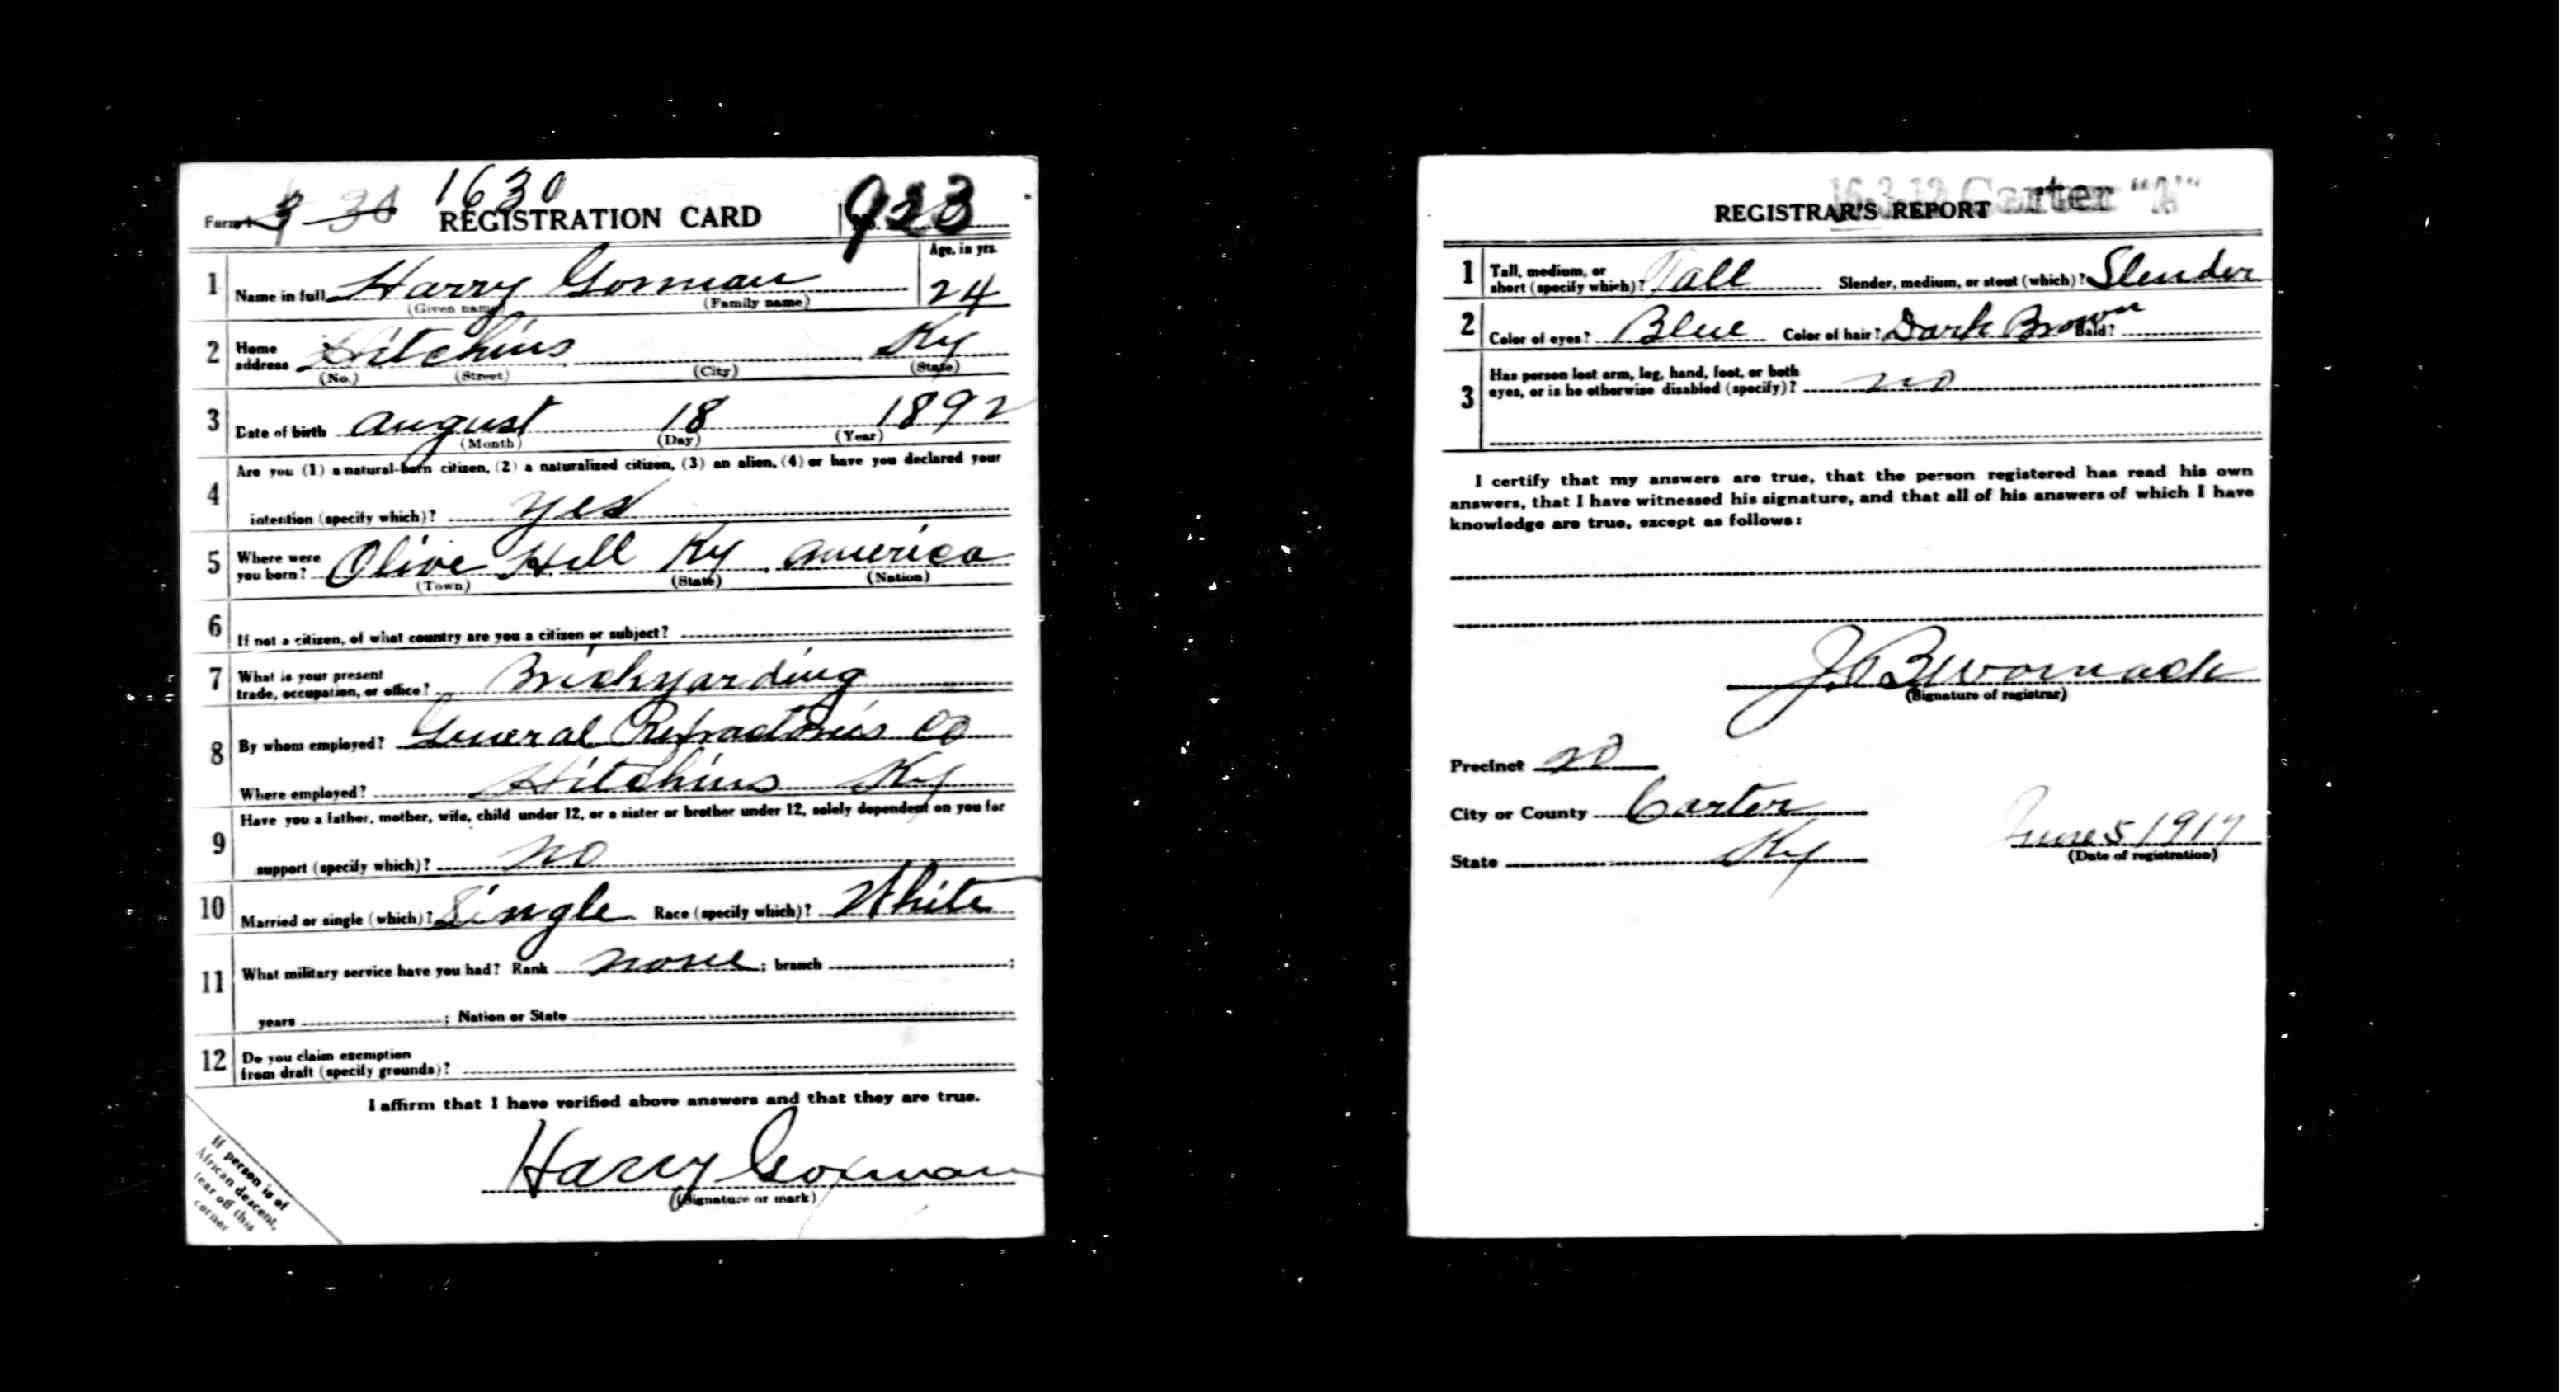 1630
Form 1 REGISTRATION CARD 923
Age, in yrs.
1 Name in full Harry Gorman 24
(Given name) (Family name)
2 Home address Hitchins Ky
(No.) (Street) (City) (State)
3 Date of birth August 18 1892
(Month) (Day) (Year)
Are you (1) a natural-born citizen, (2) a naturalized citizen, (3) an alien, (4) or have you declared your
4 intention (specify which)? yes
5 Where were you born? Olive Hill Ky America
(Town) (State) (Nation)
6 If not a citizen, of what country are you a citizen or subject?
7 What is your present trade, occupation, or office? Brickyarding
8 By whom employed? General Refractories Co
Where employed? Hitchins Ky
Have you a father, mother, wife, child under 12, or a sister or brother under 12, solely dependent on you for
9 support (specify which)? no
10 Married or single (which)? Single Race (specify which)? White
11 What military service have you had? Rank none ; branch ;
years ; Nation or State
12 Do you claim exemption
from draft (specify grounds)?
I affirm that I have verified above answers and that they are true.
Harry Gorman
(Signature or mark)
If person is of
African descent,
tear off this
corner
Carter "A"
REGISTRAR'S REPORT
1 Tall, medium, or short (specify which)? Tall Slender, medium, or stout (which)? Slender
2 Color of eyes? Blue Color of hair? Dark Brown Bald?
Has person lost arm, leg, hand, foot, or both
3 eyes, or is he otherwise disabled (specify)? no
I certify that my answers are true, that the person registered has read his own
answers, that I have witnessed his signature, and that all of his answers of which I have
knowledge are true, except as follows:
J. B. Womack
(Signature of registrar)
Precinct 20
City or County Carter
State Ky June 5 1917
(Date of registration)